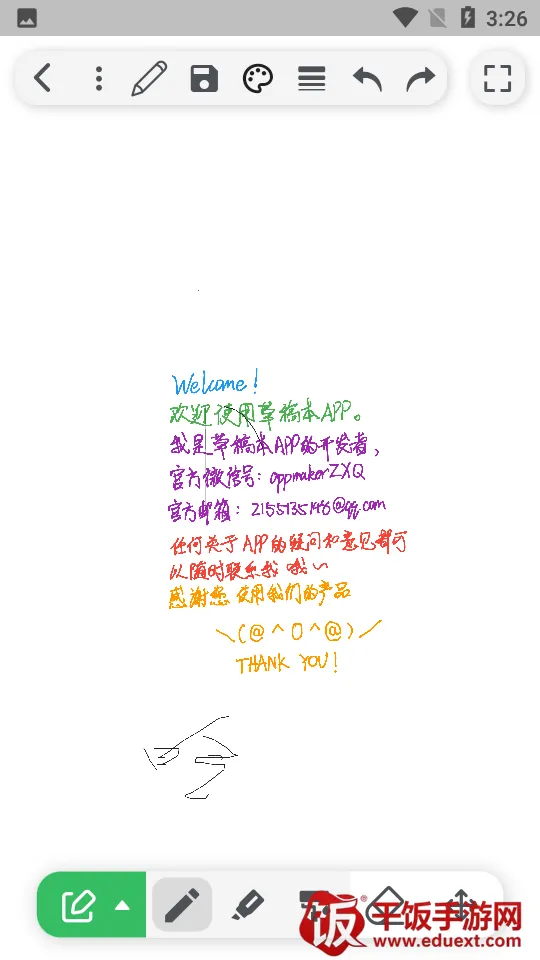 3:26
Welcome!
欢迎使用草稿本APP。
我是草稿本APP的开发者,
官方微信号: appmakerZXQ
官方邮箱: 2155135148@qq.com
任何关于APP的疑问和意见都可
以随时联系我 哦~
感谢您 使用我们的产品
\(@^O^@)/
THANK YOU!
饭®平饭手游网
www.eduext.com